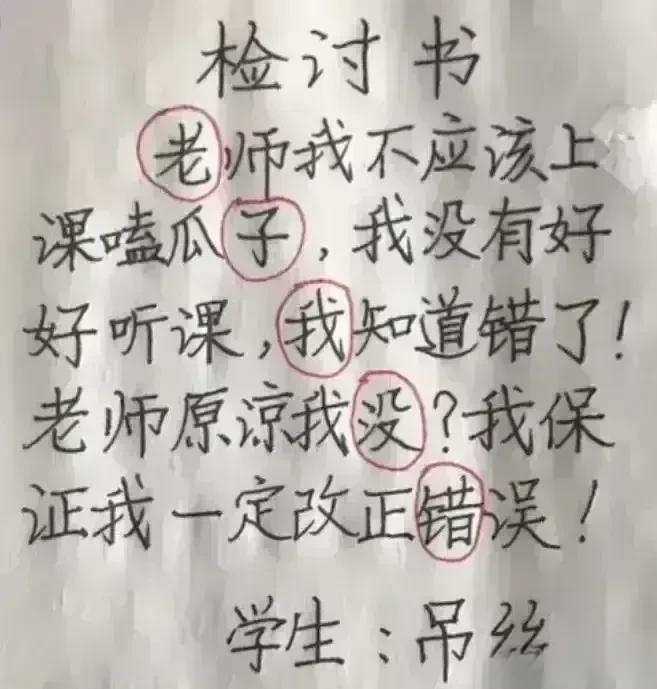 检讨书
老师我不应该上
课嗑瓜子，我没有好
好听课，我知道错了！
老师原谅我没？我保
证我一定改正错误！
学生：吊丝